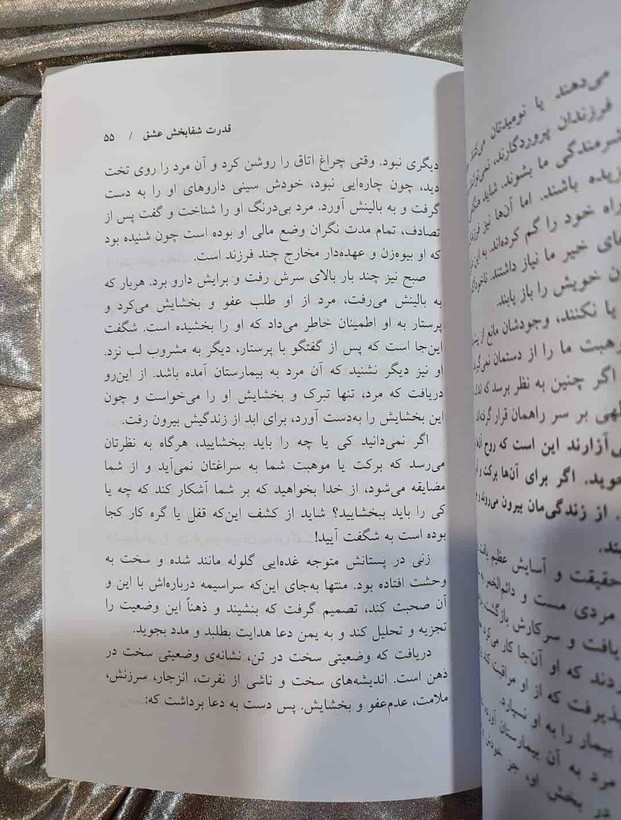 می‌دهند یا نومیدتان
فرزندان پروردگارند،
شرمندگی ما بشوند. شاید
زیده باشند. اما آن‌ها نیز
راه خود را گم کرده‌اند.
های خیر ما نیاز داشتند.
ن خویش را باز یابند.
یا نکنند، وجودشان مانع از
وهبت ما را از دستمان
اگر چنین به نظر برسد که
لهی بر سر راهمان قرار گرفته‌اند
ی‌آزارند این است که روح
جوید. اگر برای آن‌ها برکت و
. از زندگی‌مان بیرون می‌روند و
ند.
حقیقت و آسایش عظیم
مردی مست و دائم‌الخمر
یافت و سرکارش بازگشت
ردند که او آن‌جا کار می‌کرد
پذیرفت که از او مراقبت کند
بیمار را به او نسپارد.
مرد به آن بیمارستان
در بخش او، جز
قدرت شفابخش عشق / ۵۵
دیگری نبود. وقتی چراغ اتاق را روشن کرد و آن مرد را روی تخت
دید، چون چاره‌ایی نبود، خودش سینی داروهای او را به دست
گرفت و به بالینش آورد. مرد بی‌درنگ او را شناخت و گفت پس از
تصادف، تمام مدت نگران وضع مالی او بوده است چون شنیده بود
که او بیوه‌زن و عهده‌دار مخارج چند فرزند است.
صبح نیز چند بار بالای سرش رفت و برایش دارو برد. هربار که
به بالینش می‌رفت، مرد از او طلب عفو و بخشایش می‌کرد و
پرستار به او اطمینان خاطر می‌داد که او را بخشیده است. شگفت
این‌جا است که پس از گفتگو با پرستار، دیگر به مشروب لب نزد.
او نیز دیگر نشنید که آن مرد به بیمارستان آمده باشد. از این‌رو
دریافت که مرد، تنها تبرک و بخشایش او را می‌خواست و چون
این بخشایش را به‌دست آورد، برای ابد از زندگیش بیرون رفت.
اگر نمی‌دانید کی یا چه را باید ببخشایید، هرگاه به نظرتان
می‌رسد که برکت یا موهبت شما به سراغتان نمی‌آید و از شما
مضایقه می‌شود، از خدا بخواهید که بر شما آشکار کند که چه یا
کی را باید ببخشایید؟ شاید از کشف این‌که قفل یا گره کار کجا
بوده است به شگفت آیید!
زنی در پستانش متوجه غده‌ایی گلوله مانند شده و سخت به
وحشت افتاده بود. منتها به‌جای این‌که سراسیمه درباره‌اش با این و
آن صحبت کند، تصمیم گرفت که بنشیند و ذهناً این وضعیت را
تجزیه و تحلیل کند و به یمن دعا هدایت بطلبد و مدد بجوید.
دریافت که وضعیتی سخت در تن، نشانه‌ی وضعیتی سخت در
ذهن است. اندیشه‌های سخت و ناشی از نفرت، انزجار، سرزنش،
ملامت، عدم‌عفو و بخشایش. پس دست به دعا برداشت که: